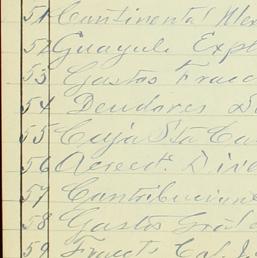 51 Continental Mex
52 Guayule Expl
53 Gastos Franc
54 Deudores D
55 Caja Sta Ca
56 Acreed. Dive
57 Contribucione
58 Gastos Gral
59 Fructs Cal. J